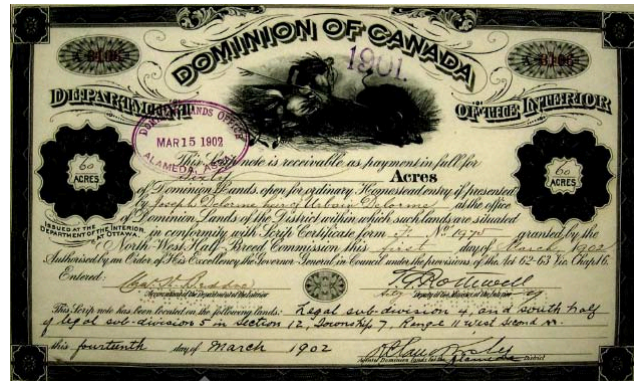 DOMINION OF CANADA
1901.
DEPARTMENT OF THE INTERIOR
DOMINION LANDS OFFICE
MAR 15 1902
ALAMEDA, ASSA
60 ACRES
60 ACRES
This Scrip note is receivable as payment in full for
Sixty Acres
of Dominion Lands, open for ordinary Homestead entry if presented
by Joseph Delorme heir of Urbain Delorme at the office
of Dominion Lands of the District within which such lands are situated
ISSUED AT THE DEPARTMENT OF THE INTERIOR, AT OTTAWA.
in conformity with Scrip Certificate form No 1975 granted by the
North West Half Breed Commission this first day of March 1902
Authorised by an Order of His Excellency the Governor General in Council under the provisions of the Act 62-63 Vic. Chap 16.
Entered:
This Scrip note has been located on the following lands: Legal sub-division 4, and south half
of legal sub-division 5 in Section 12, Township 7, Range 11 west second M.
this fourteenth day of March 1902